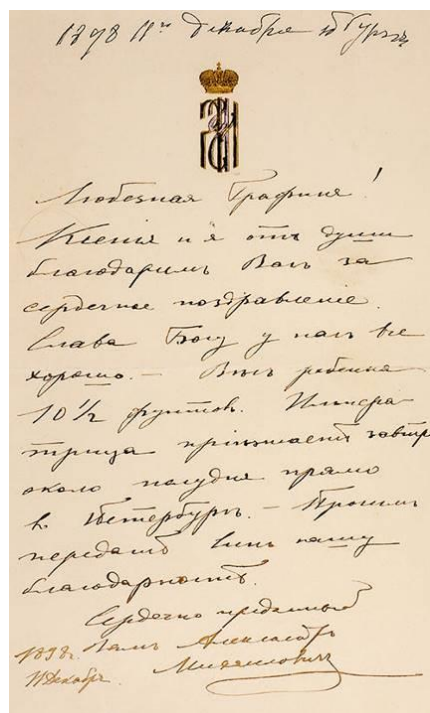 1898 11го декабря
Любезная Графиня!
Ксенія и я отъ души
благодаримъ Васъ за
сердечное поздравленіе.
Слава Богу у насъ все
хорошо. — Вѣсъ ребенка
10 1/2 фунтовъ. Импера-
трица пріѣзжаетъ завтр
около полудня прямо
въ Петербургъ. — Просимъ
передать нашу
благодарность.
Сердечно преданный
Вамъ Александръ
Михаиловичъ
1898г.
11 Декабр.